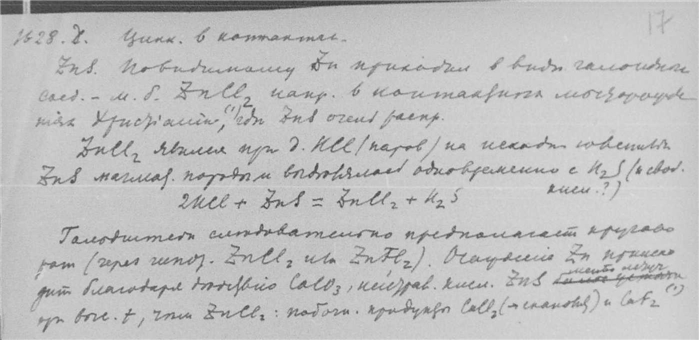 17
1628.X. Цинк. в контактах.
ZnS. Повидимому Zn приходил в виде галоидных
соед. – м. б. ZnCl2, напр. в контактных месторожде
ниях Христиании,(1) где ZnS очень распр.
ZnCl2 явился при д. HCl (паров) на
ZnS магмат. породы и выделялся одновременно с H2S (и своб.
кисл.?)
2HCl + ZnS = ZnCl2 + H2S
следовательно предполагает кругово
рот (через ZnCl2 или ZnFl2). Осаждение Zn происхо
дит благодаря действию CaCO3, кисл. ZnS
при выс. t, чем ZnCl2: побочн. продукты CaCl2 (→ скаполит) и CaF2 (1)